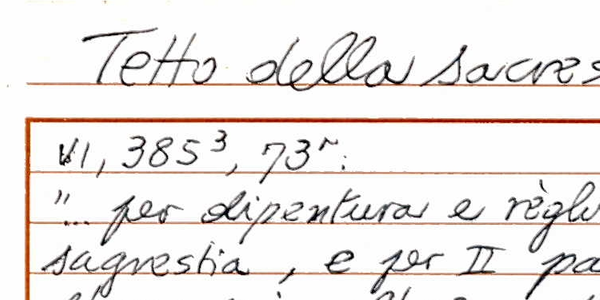 Tetto della sacres
VI, 385³, 73ʳ:
"... per dipentura e règhi
sagrestia, e per II pa